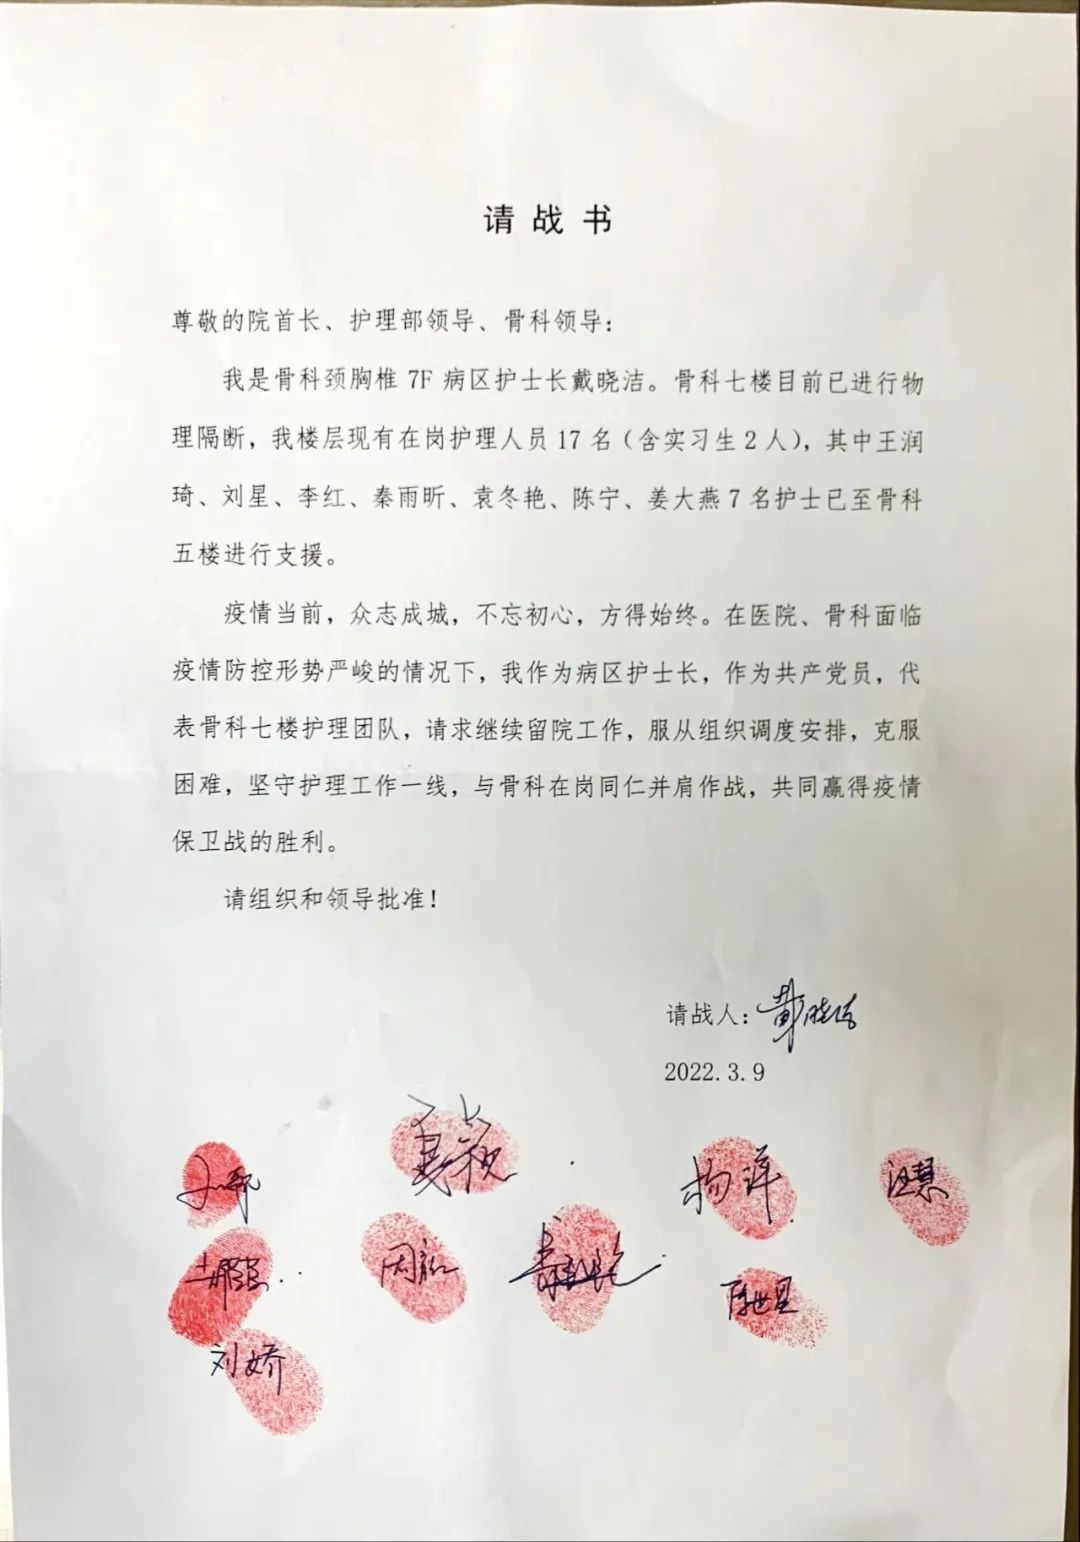 请战书
尊敬的院首长、护理部领导、骨科领导：
我是骨科颈胸椎 7F 病区护士长戴晓洁。骨科七楼目前已进行物
理隔断，我楼层现有在岗护理人员17名（含实习生2人），其中王润
琦、刘星、李红、秦雨昕、袁冬艳、陈宁、姜大燕7名护士已至骨科
五楼进行支援。
疫情当前，众志成城，不忘初心，方得始终。在医院、骨科面临
疫情防控形势严峻的情况下，我作为病区护士长，作为共产党员，代
表骨科七楼护理团队，请求继续留院工作，服从组织调度安排，克服
困难，坚守护理工作一线，与骨科在岗同仁并肩作战，共同赢得疫情
保卫战的胜利。
请组织和领导批准！
请战人：戴晓洁
2022.3.9
杨洋
汪慧
陈世星
刘娇